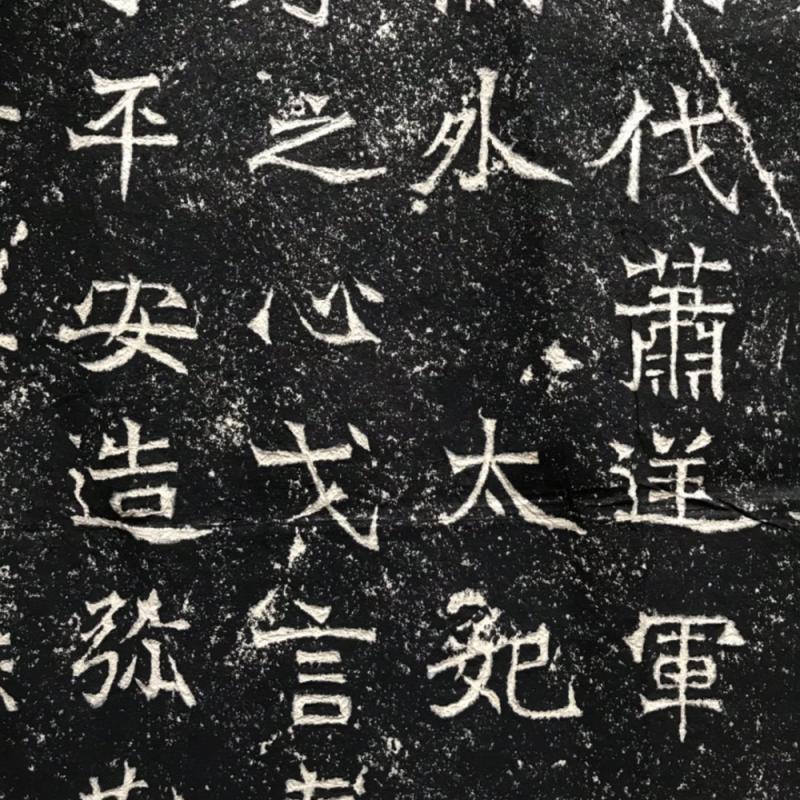 伐蕭逆軍
外太妃
之心戈言
平安造弥